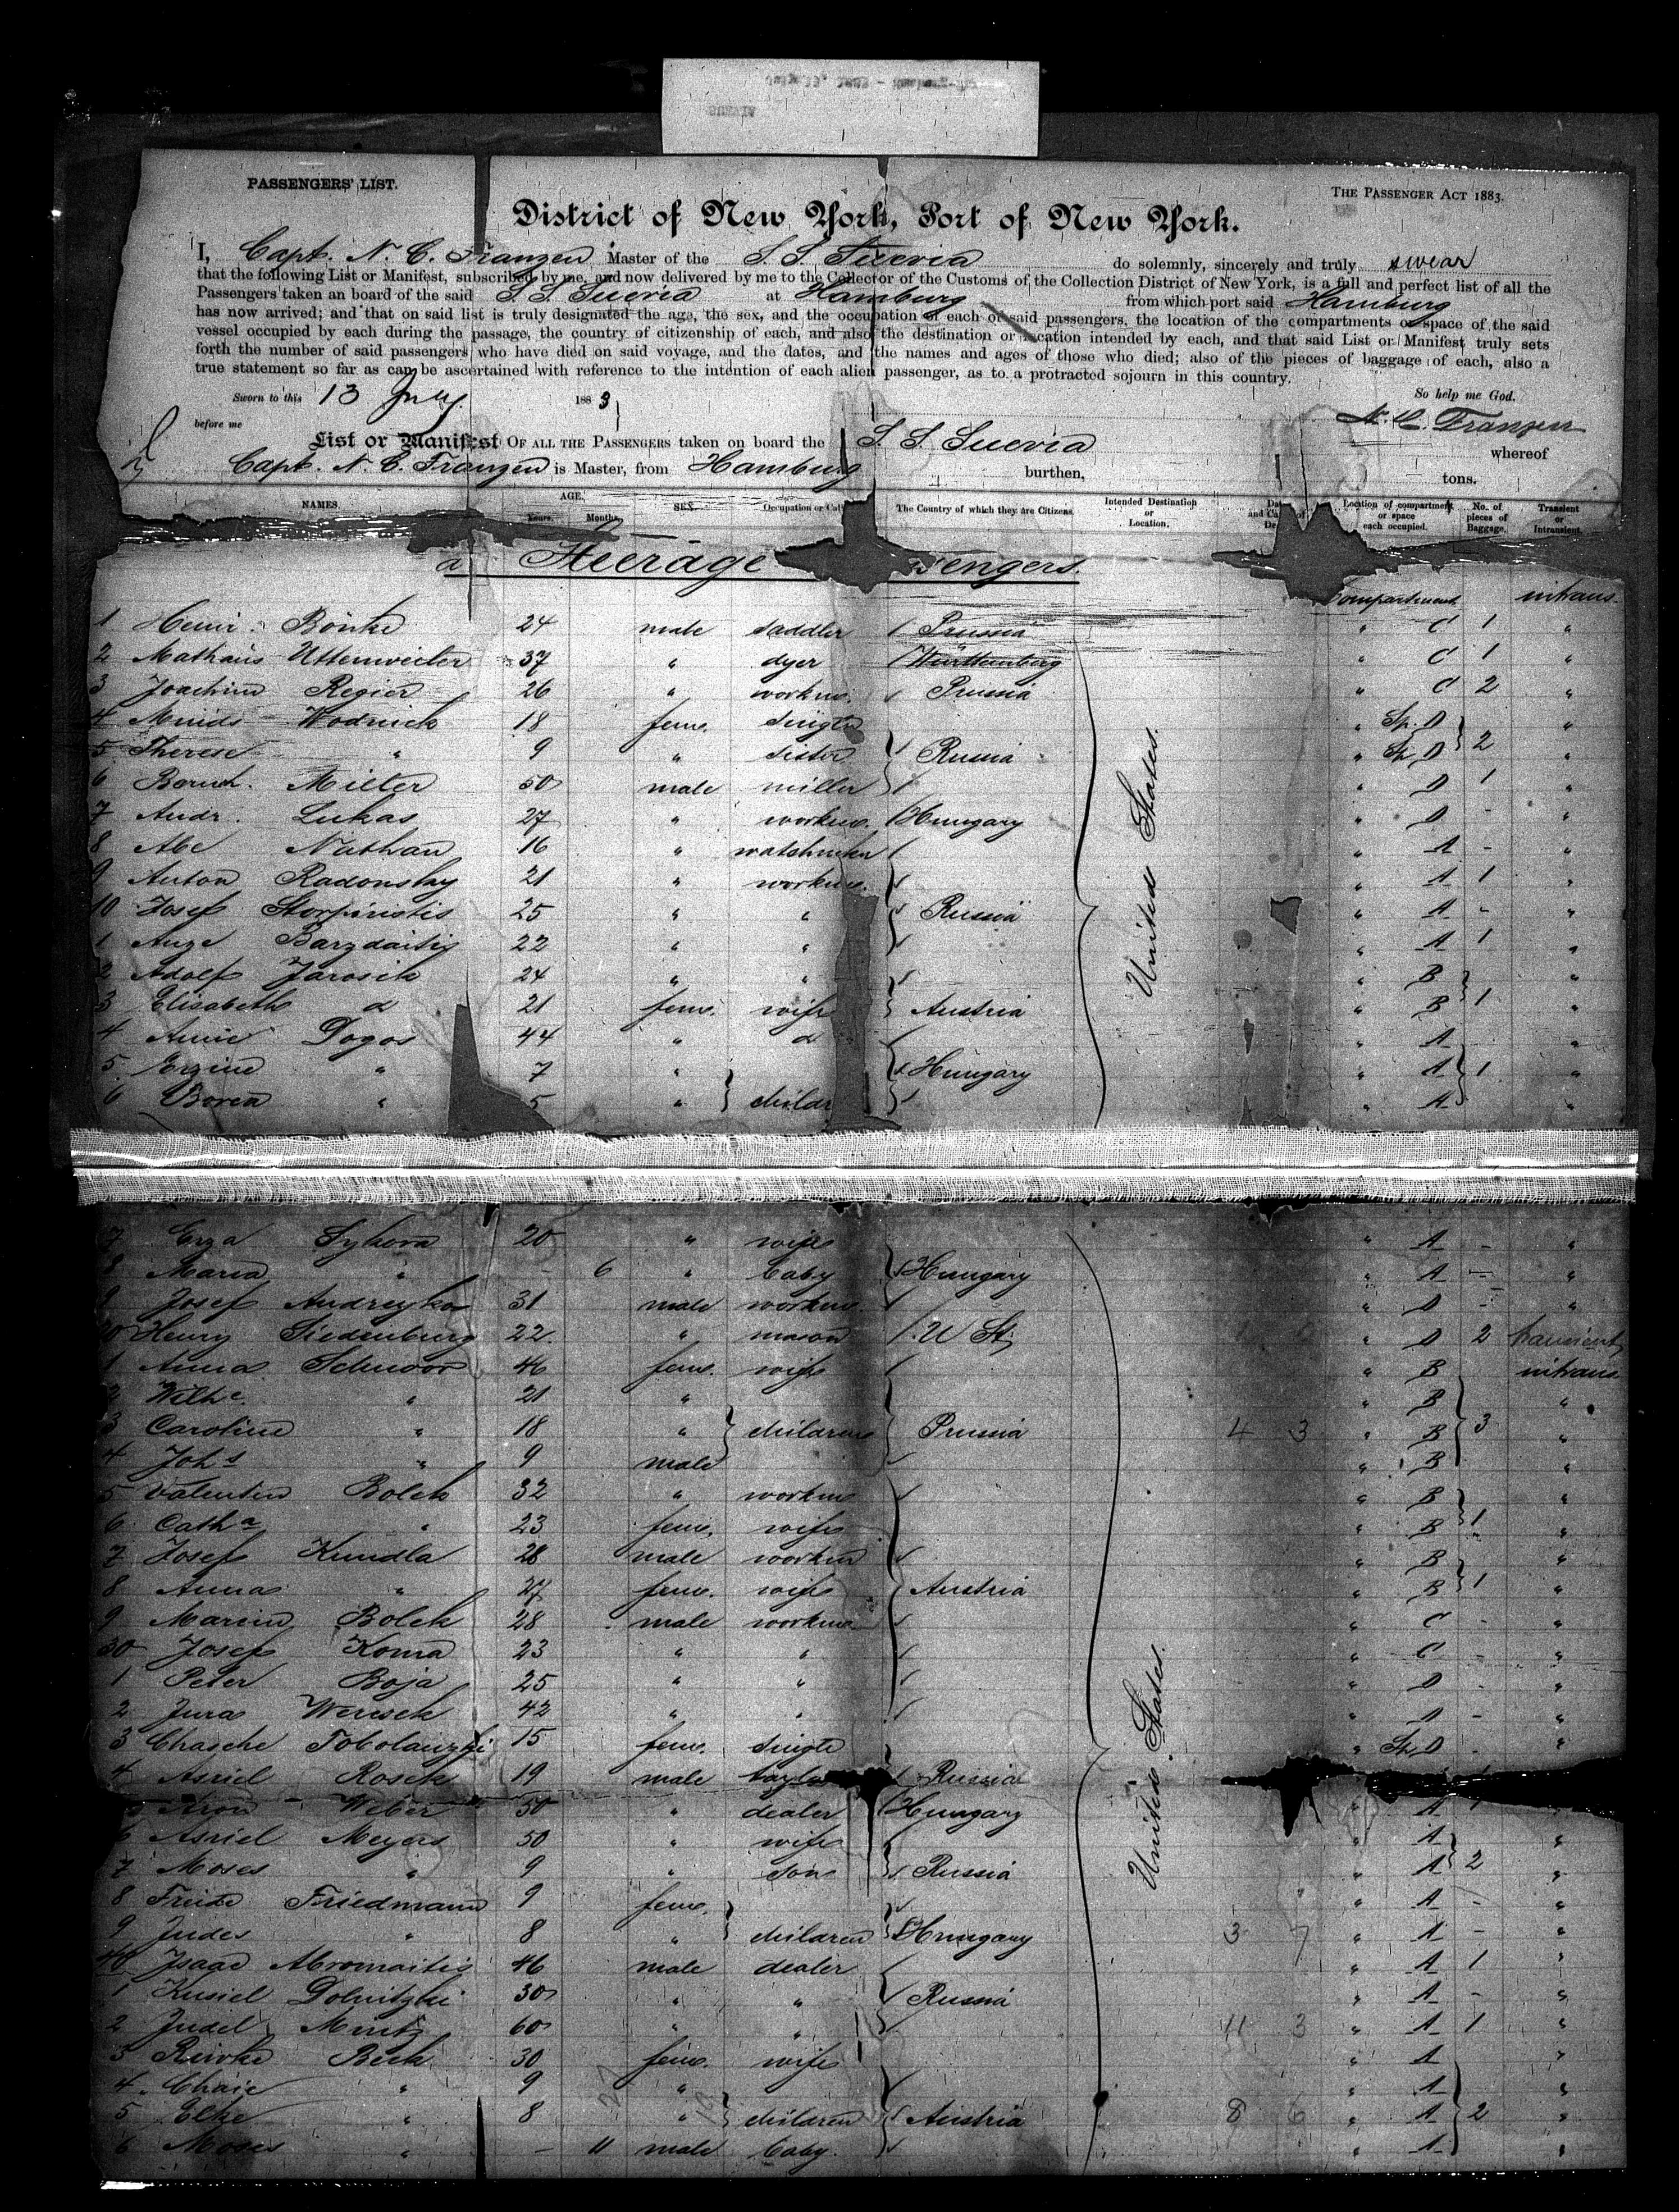 PASSENGERS' LIST.
THE PASSENGER ACT 1883.
District of New York, Port of New York.
I, Capt. N. C. Franzen Master of the S. S. Suevia do solemnly, sincerely and truly swear
that the following List or Manifest, subscribed by me, and now delivered by me to the Collector of the Customs of the Collection District of New York, is a full and perfect list of all the
Passengers taken an board of the said S. S. Suevia at Hamburg from which port said Hamburg
has now arrived; and that on said list is truly designated the age, the sex, and the occupation of each of said passengers, the location of the compartments or space of the said
vessel occupied by each during the passage, the country of citizenship of each, and also the destination or location intended by each, and that said List or Manifest truly sets
forth the number of said passengers who have died on said voyage, and the dates, and the names and ages of those who died; also of the pieces of baggage of each, also a
true statement so far as can be ascertained with reference to the intention of each alien passenger, as to a protracted sojourn in this country.
Sworn to this 13 July 1883 So help me God.
before me N. C. Franzen
List or Manifest OF ALL THE PASSENGERS taken on board the S. S. Suevia whereof
Capt. N. C. Franzen is Master, from Hamburg burthen, tons.
NAMES AGE. Years. Months. SEX. Occupation or The Country of which they are Citizens. Intended Destination or Location. Location of compartment or space each occupied. No. of pieces of Baggage. Transient or Intransient.
a Steerage engers.
Compartment intrans.
1 Heinr. Bönke 24 male saddler Prussia " C 1 "
2 Mathäus Uttenweiler 37 " dyer Württemberg " C 1 "
3 Joachim Regier 26 " workm. Prussia " C 2 "
4 Wodnick 18 fem. single " Sp. D "
5 Therese " 9 " sister Russia " Sp. D 2 "
6 Boruch. Miller 50 male miller " D 1 "
7 Andr. Lukas 27 " workm. Hungary " D - "
8 Abe Nathan 16 " " A - "
9 Anton Radonsky 21 " workm. " A 1 "
10 Josef Storpiristis 25 " " Russia " A - "
1 Anze Barzdaitis 22 " " " A 1 "
2 Adolf Jarosik 24 " " " B "
3 Elisabeth d 21 fem. wife Austria " B 1 "
4 Annie Dogos 44 " d " A "
5 Erzine " 7 " Hungary " A 1 "
6 Borca " 5 " childr " A "
United States.
7 Erza Sykora 20 " wife " A - "
8 Maria " - 6 " baby Hungary " A - "
9 Josef Andreyko 31 male workm. " D - "
20 Henry Siedenburg 22 " mason U St. " D 2 transient
1 Anna Schnoor 46 fem. wife " B intrans.
2 Wilh.e " 21 " " B "
3 Caroline " 18 " children Prussia 4 3 " B 3 "
4 Joh.s " 9 male " B "
5 Valentin Bolek 32 " workm " B "
6 Cath.a " 23 fem. wife " B 1 "
7 Josef Kundla 28 male workm " B "
8 Anna " 27 fem. wife Austria " B 1 "
9 Marcin Bolek 28 male workm. " C - "
30 Josef Koma 23 " " " C - "
1 Peter Boja 25 " " " D - "
2 Jura Weresck 42 " " " A - "
3 Chasche Tobolanzki 15 fem. single " Sp. D - "
4 Asriel Rosek 19 male Russia
5 Aron Weber 50 " dealer Hungary " A 1 "
6 Asriel Meyers 50 " wife " A "
7 Moses " 9 " son Russia " A 2 "
8 Freide Friedmann 9 fem. " A - "
9 Judes " 8 " children Hungary 3 7 " A - "
40 Isaac Abromaitis 46 male dealer " A 1 "
1 Kusiel Dolnitzki 30 " " Russia " A - "
2 Judel Mintz 60 " " 11 3 " A 1 "
3 Reiwke Beck 30 fem. wife " A "
4 Chaie " 9 " " A "
5 Elke " 8 " children Austria 8 6 " A 2 "
6 Moses " - 11 male baby. " A "
United States.